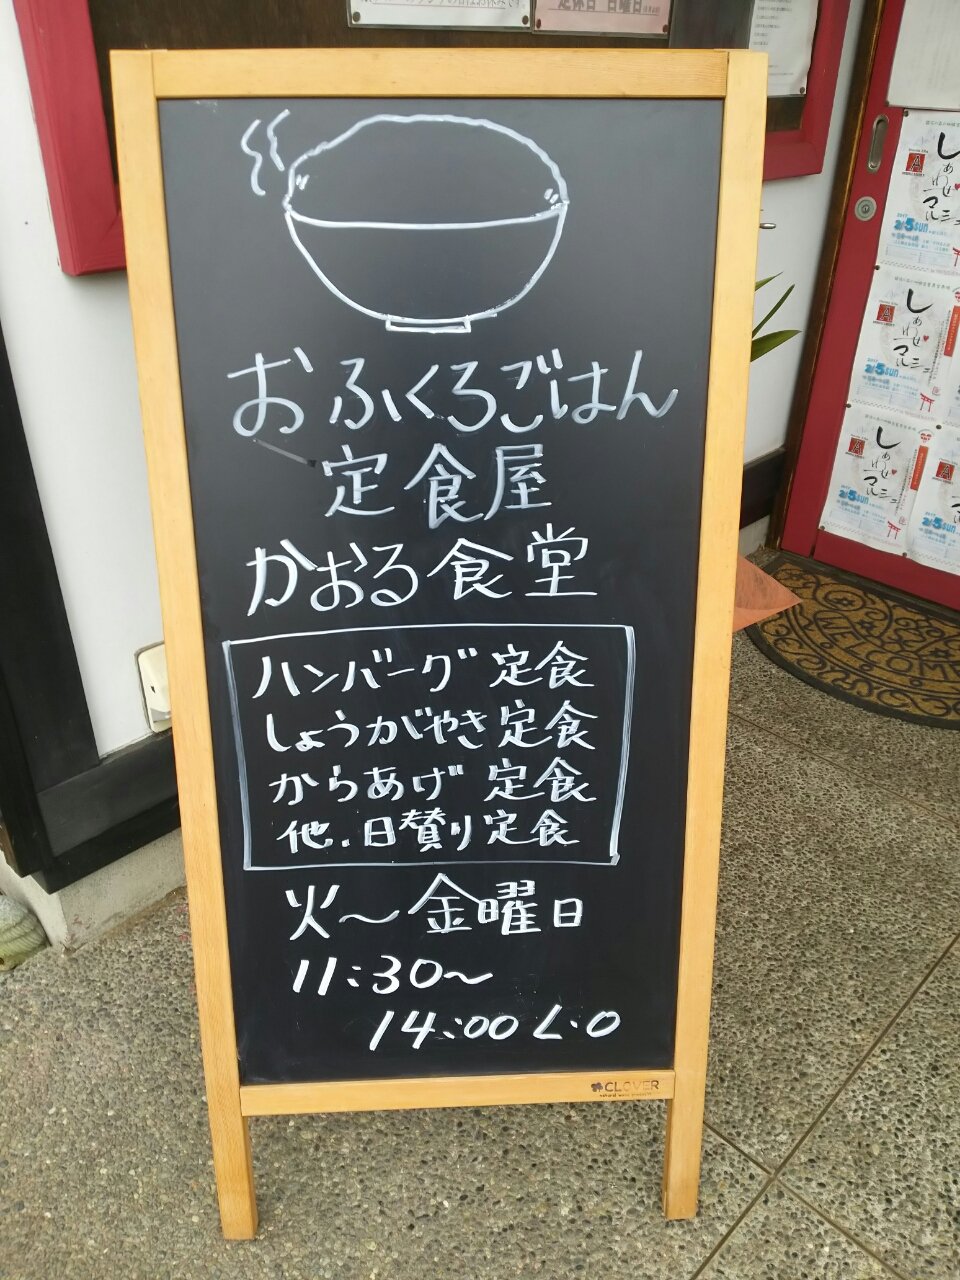 定休日 日曜日
おふくろごはん
定食屋
かおる食堂
ハンバーグ 定食
しょうがやき定食
からあげ 定食
他.日賛り定食
火〜金曜日
11:30〜
14:00 L.O
CLOVER
しあわせ
マルシェ
2/5sun
しあわせ
マルシェ
2/5sun
しあわせ
マルシェ
2/5sun
2/5sun
WELCOME